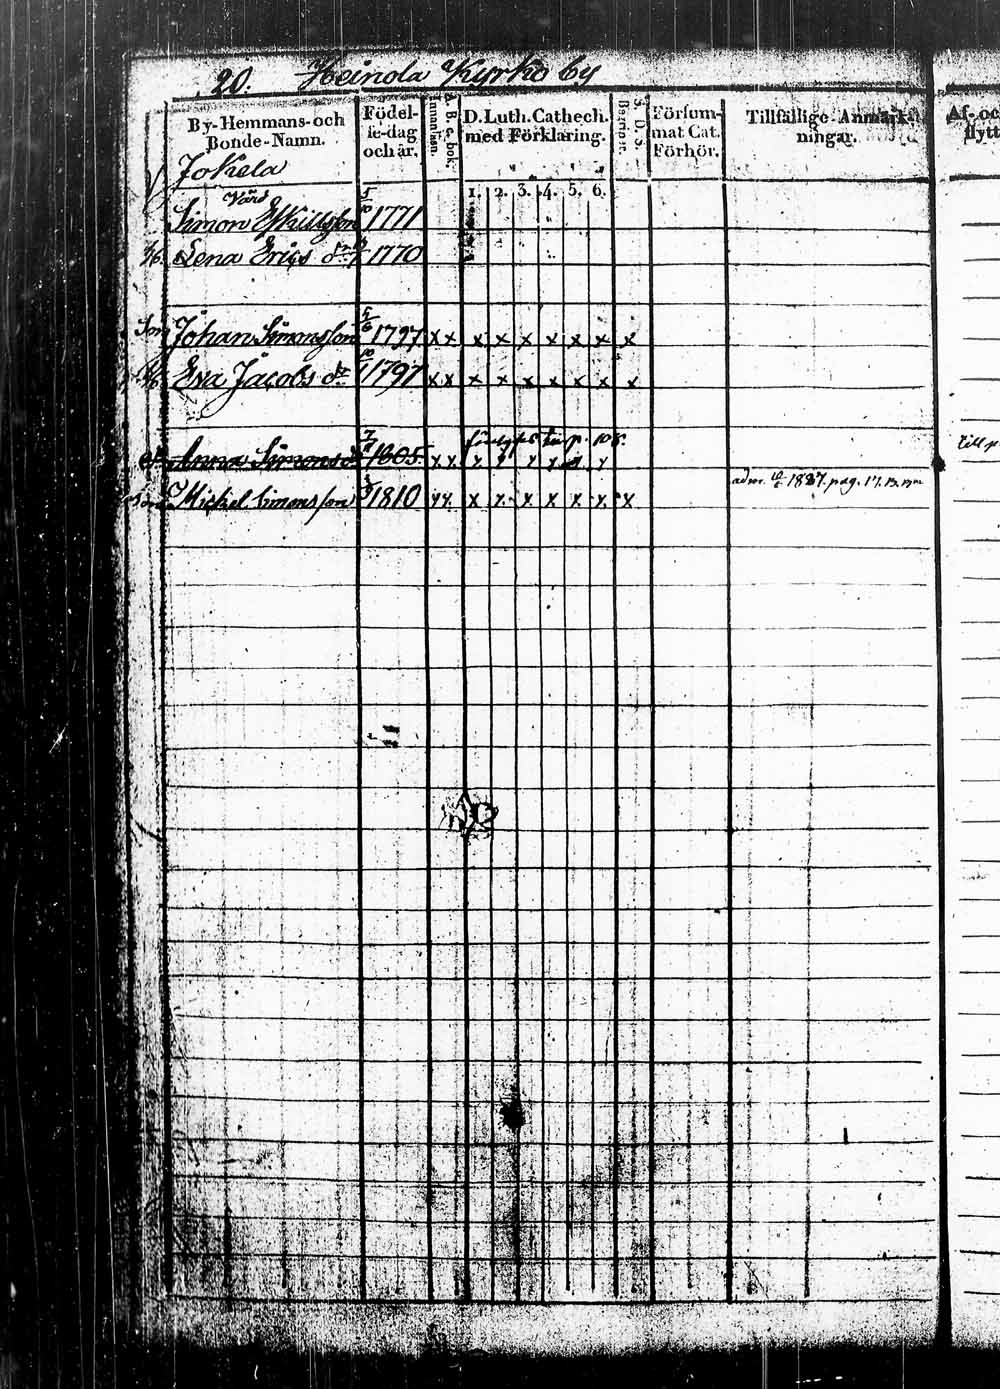 20. Heinola Kyrko by
By-Hemmans- och Bonde-Namn.
Födel-se-dag och år.
Innanläsn.
A. B. C. bok.
D. Luth. Cathech. med Förklaring.
1. 2. 3. 4. 5. 6.
S. D. S.
Begrip r.
Försum-mat Cat. Förhör.
Tillfällige Anmärk-ningar.
Af- oc
flytt
Jokela
Värd
Simon Eskillsson 5/10 1771
H. Lena Erics dr 1770
Son Johan Simonsson 5/6 1797 x x x x x x x x x
H. Eva Jacobs dr 10/1 1797 x x x x x x x x x
p. 105.
Anna Simons dr 1805 x x x x x x x x
till p.
Son Michel Simonsson 1810 x x x x x x x x x
adm. 1827. pag. 17.